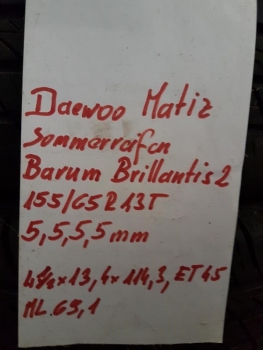 Daewoo Matiz
Sommerreifen
Barum Brillantis 2
155/65 R 13 T
5,5,5,5 mm
4½ x 13, 4 x 114,3, ET 45
ML 69,1